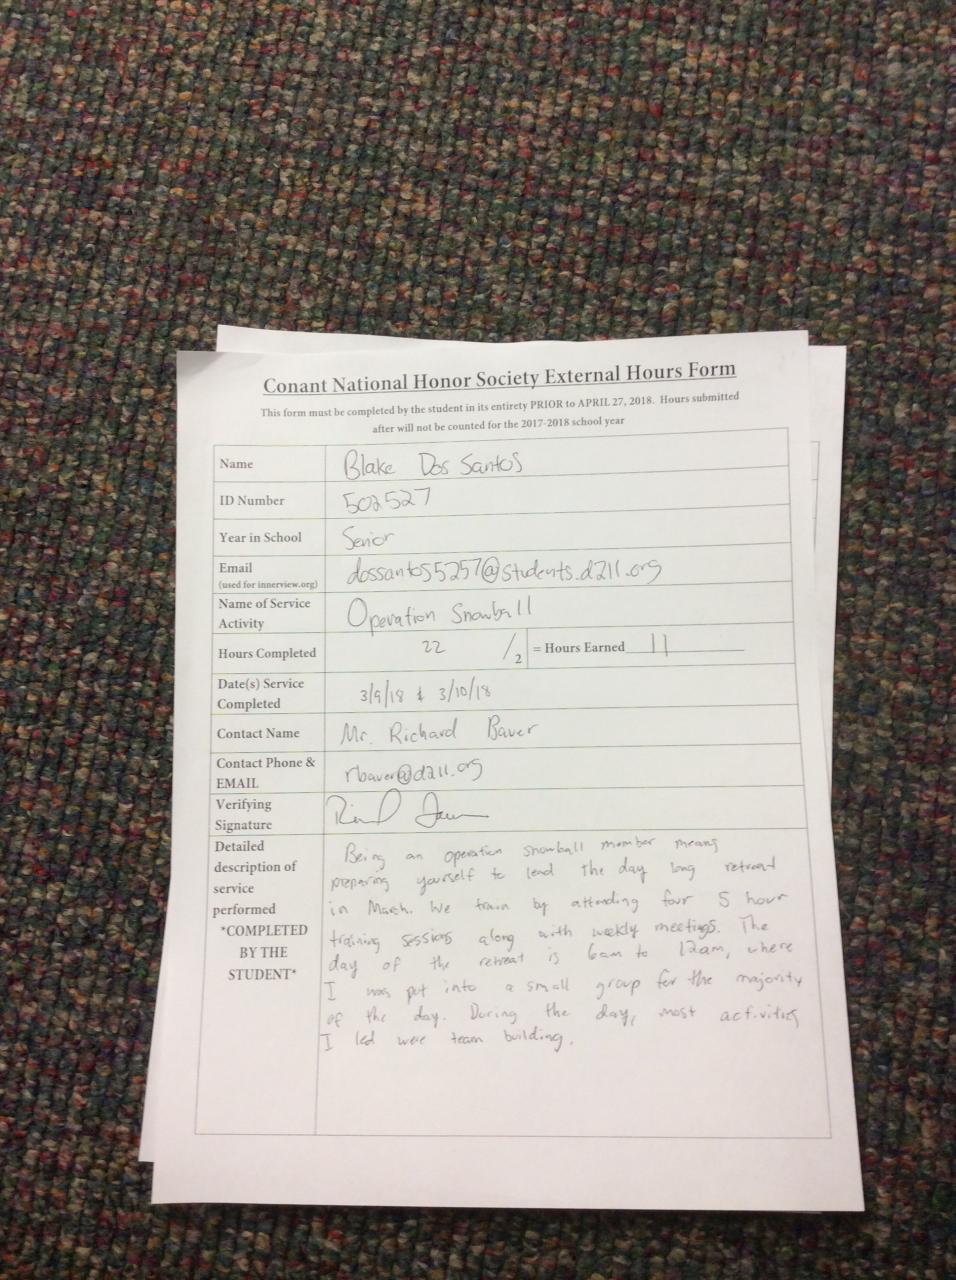 Conant National Honor Society External Hours Form
This form must be completed by the student in its entirety PRIOR to APRIL 27, 2018. Hours submitted
after will not be counted for the 2017-2018 school year
Name Blake Dos Santos
ID Number 502527
Year in School Senior
Email dossantos5257@students.d211.org
(used for innerview.org)
Name of Service
Activity Operation Snowball
Hours Completed 22 /2 = Hours Earned 11
Date(s) Service
Completed 3/9/18 & 3/10/18
Contact Name Mr. Richard Bauer
Contact Phone &
EMAIL rbauer@d211.org
Verifying
Signature
Detailed
description of
service
performed
*COMPLETED
BY THE
STUDENT*
Being an operation snowball member means
preparing yourself to lead the day long retreat
in March. We train by attending four 5 hour
training sessions along with weekly meetings. The
day of the retreat is 6am to 12am, where
I was put into a small group for the majority
of the day. During the day, most activities
I led were team building.